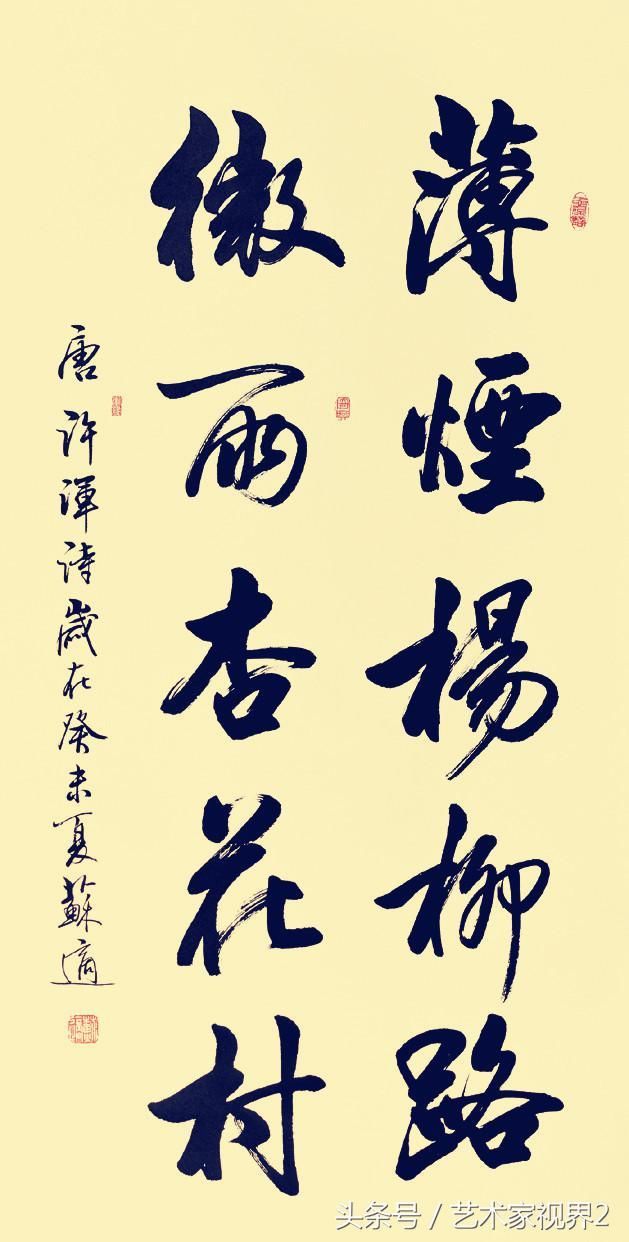 薄煙楊柳路
微雨杏花村
唐許渾詩歲在癸未夏蘇適
头条号 / 艺术家视界2